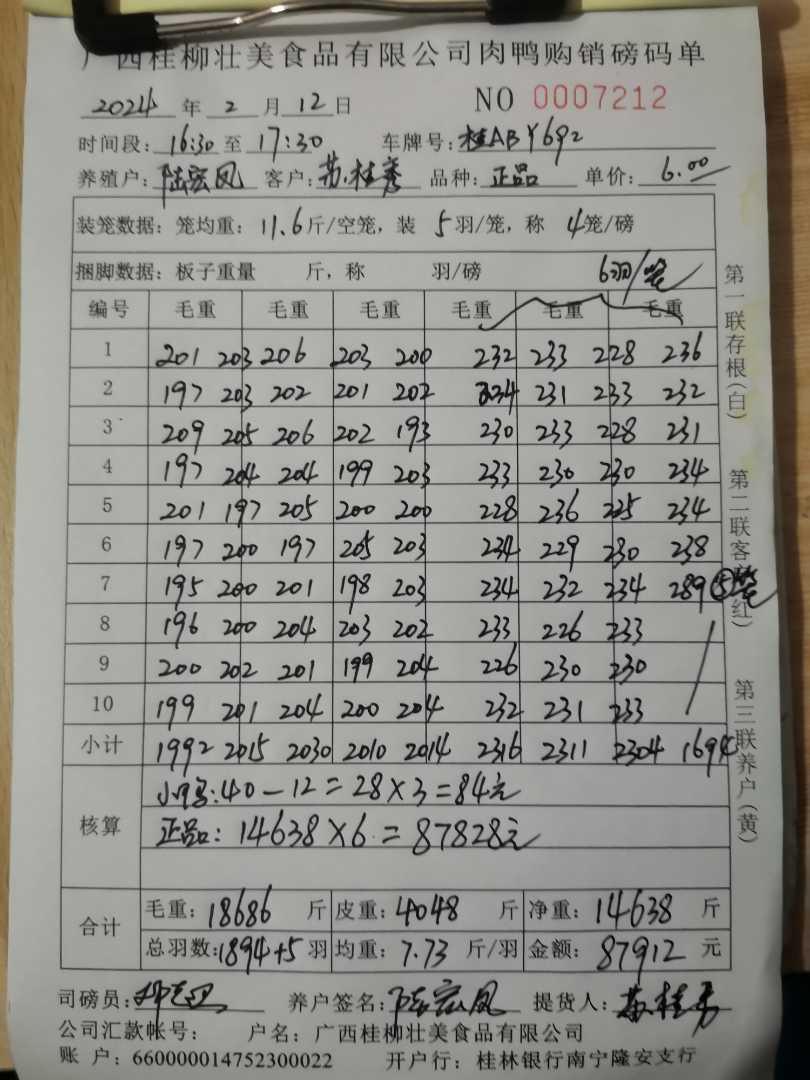 广西桂柳壮美食品有限公司肉鸭购销磅码单
2024 年 2 月 12 日 NO 0007212
时间段: 16:30 至 17:30 车牌号: 桂ABY692
养殖户: 陆宏凤 客户: 苏桂秀 品种: 正品 单价: 6.00
装笼数据: 笼均重: 11.6 斤/空笼, 装 5 羽/笼, 称 4 笼/磅
捆脚数据: 板子重量 斤, 称 羽/磅 6羽/笼
编号 毛重 毛重 毛重 毛重 毛重 毛重
1 201 203 206 203 200 232 233 228 236
2 197 203 202 201 202 234 231 233 232
3 209 205 206 202 193 230 233 228 231
4 197 204 204 199 203 233 230 230 234
5 201 197 205 200 200 228 236 225 234
6 197 200 197 205 203 234 229 230 238
7 195 200 201 198 203 234 232 234 289 ⑤笼
8 196 200 204 203 202 233 226 233
9 200 202 201 199 204 226 230 230
10 199 201 204 200 204 232 231 233
小计 1992 2015 2030 2010 2014 2316 2311 2304 1694
核算 小鸭: 40-12=28×3=84元
正品: 14638×6=87828元
合计 毛重: 18686 斤 皮重: 4048 斤 净重: 14638 斤
总羽数: 1894+5 羽 均重: 7.73 斤/羽 金额: 87912 元
司磅员: 养户签名: 陆宏凤 提货人: 苏桂秀
公司汇款帐号: 户名: 广西桂柳壮美食品有限公司
账 户: 660000014752300022 开户行: 桂林银行南宁隆安支行
第一联存根(白)
第二联客(红)
第三联养户(黄)